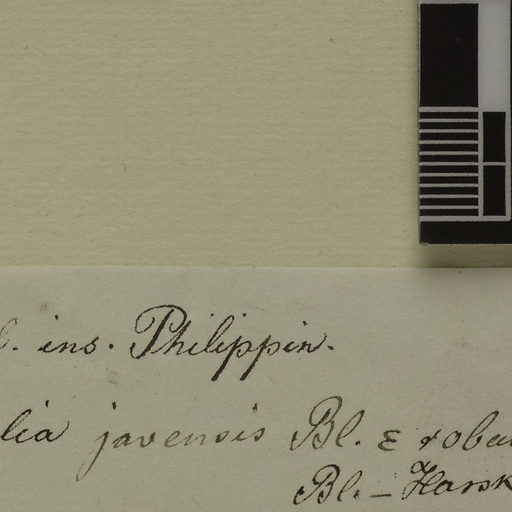 . ins. Philippin.
lia javensis Bl. ε robu
Bl. – Hassk